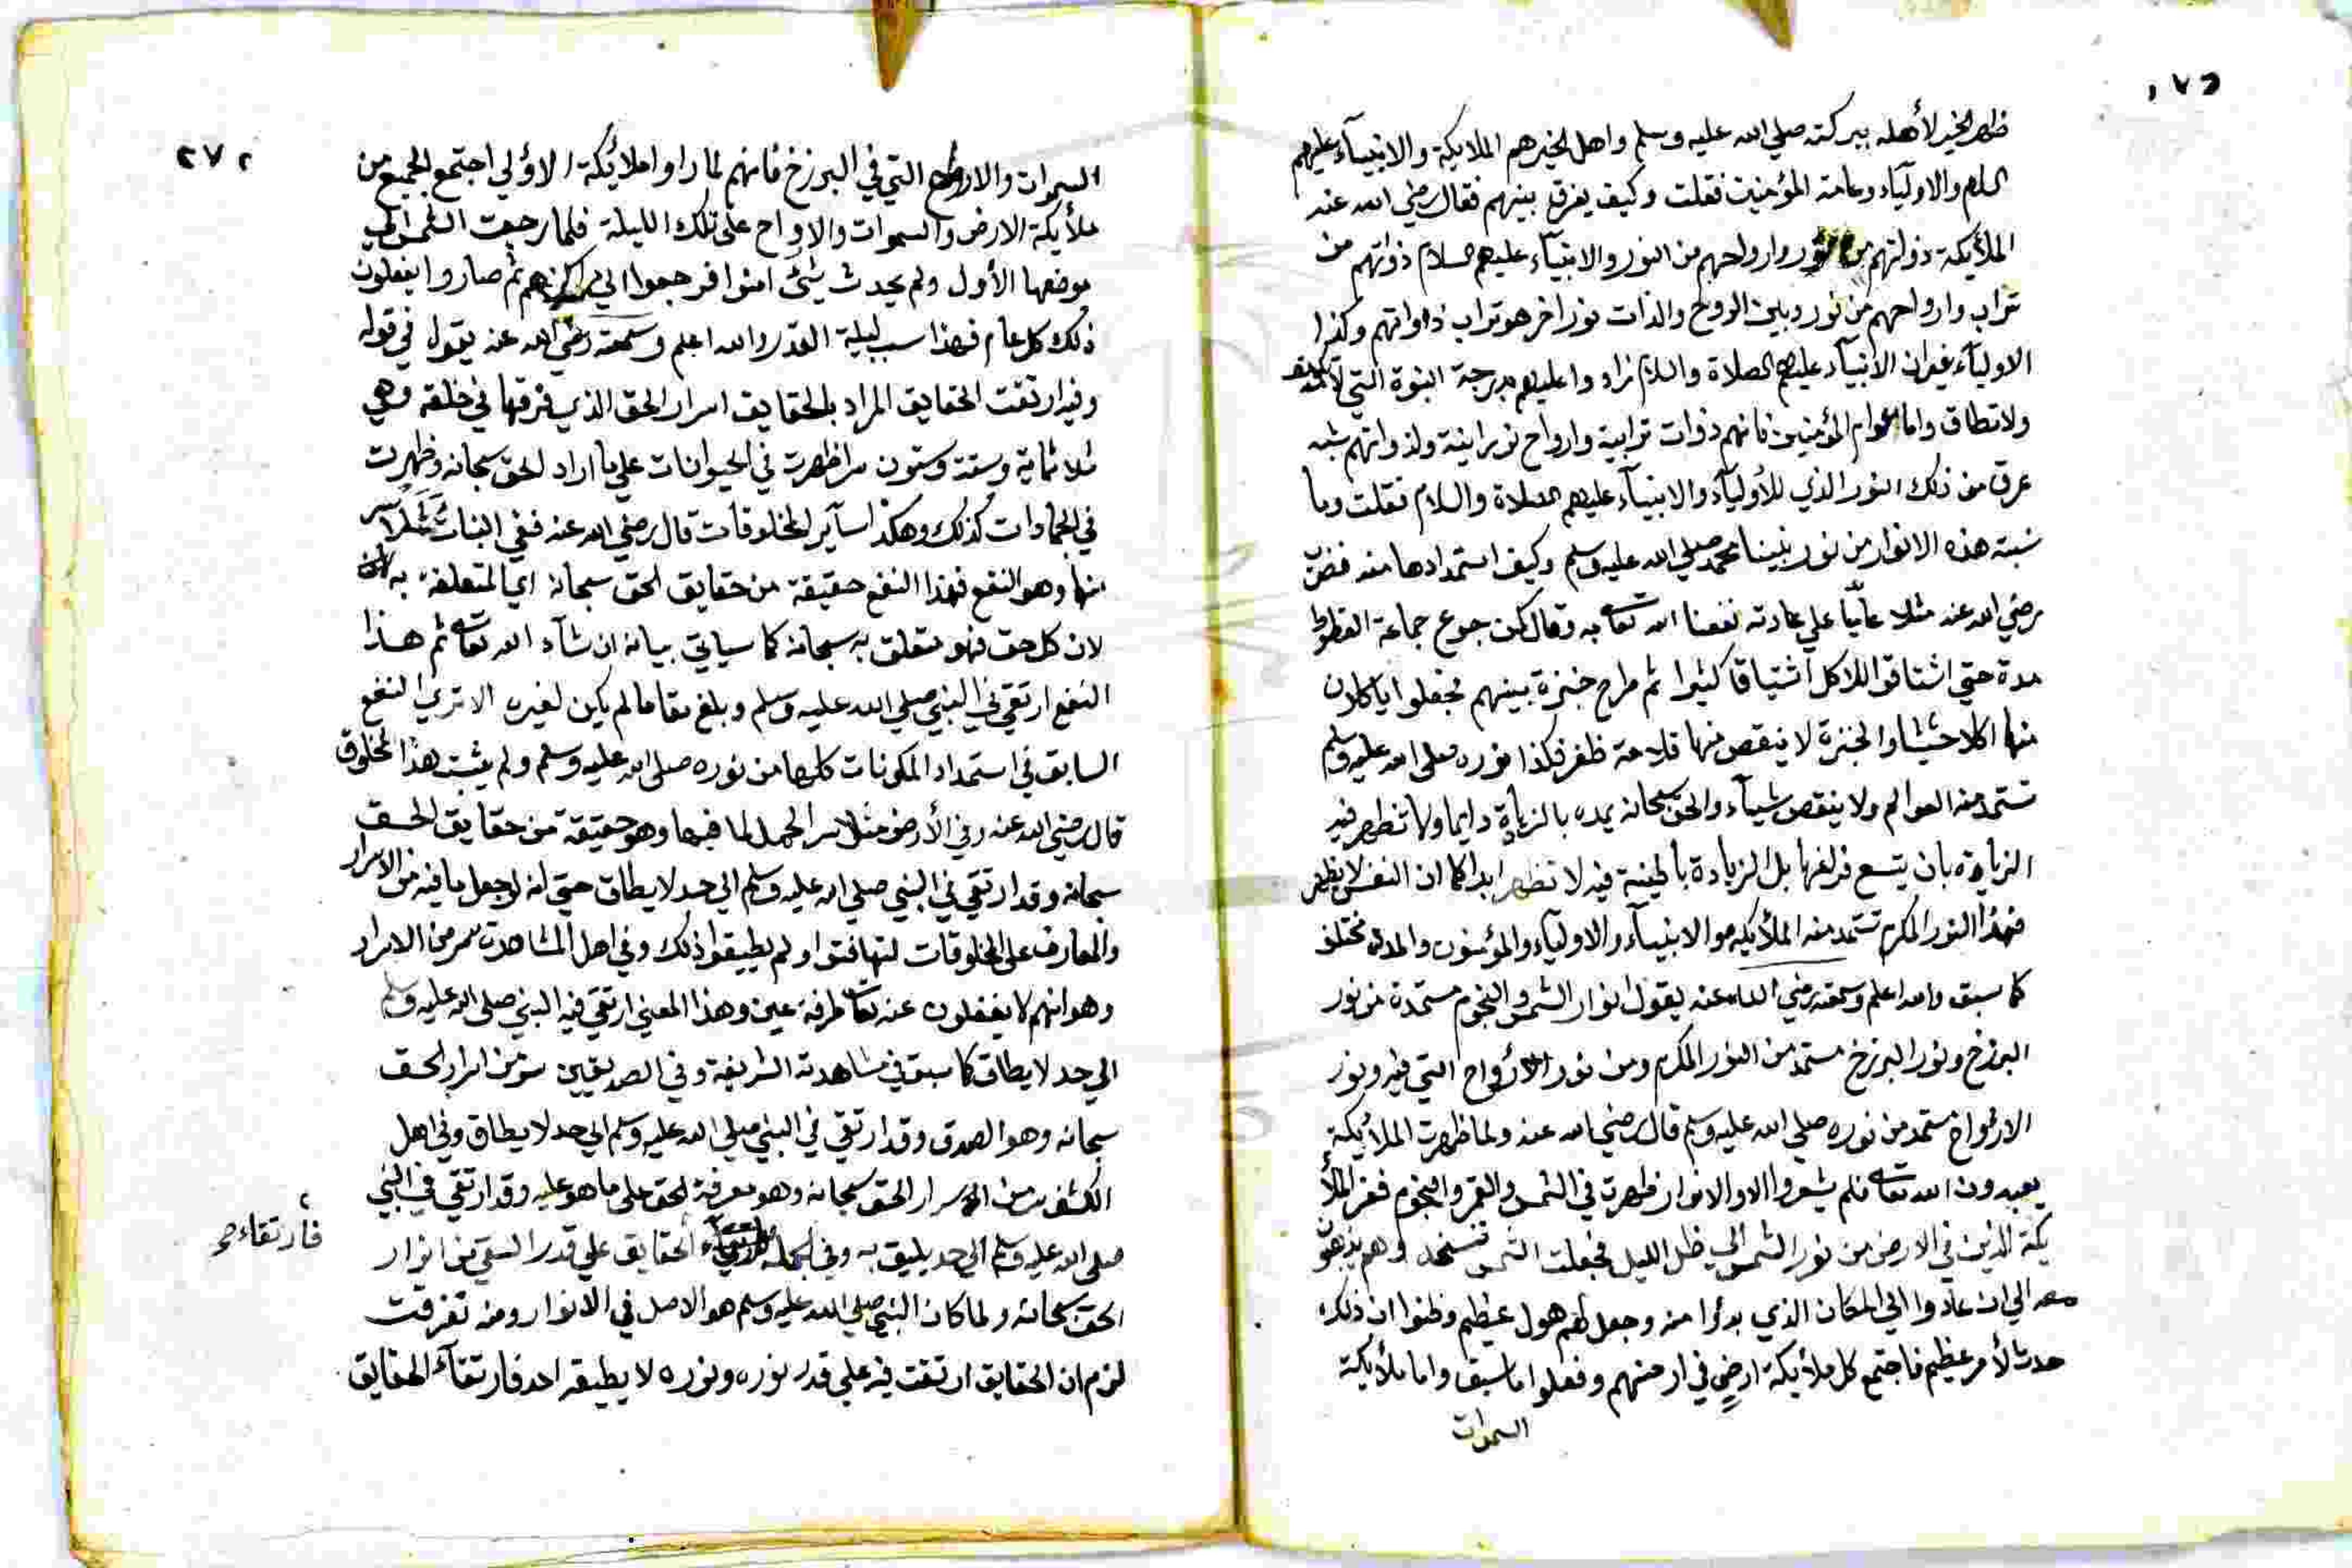 ٢٧١
ظهر الخير لأهله ببركته صلي الله عليه وسلم واهل الخير هم الملايكة والانبيآء عليهم
السلام والاوليآء وعامة المؤمنين فقلت وكيف يفرق بينهم فقال رضي الله عنه
الملأيكة ذواتهم من النور وارواحهم من النور والانبيآء عليهم السلام ذواتهم من
تراب وارواحهم من نور وبين الروح والذات نور اخر هو تراب ذواتهم وكذا
الاوليآء غير ان الانبيآء عليهم الصلاة والسلام زادوا عليهم بدرجة النبوة التي لا تكيف
ولا تطاق واما عوام المؤمنين فانهم ذوات ترابية وارواح نورانية ولذواتهم شبه
عرق من ذلك النور الذي للأوليآء والانبيآء عليهم الصلاة والسلام فقلت وما
نسبة هذه الانوار من نور نبينا محمد صلي الله عليه وسلم وكيف استمدادها منه فضرب
رضي الله عنه مثلا عاميا علي عادته نفعنا الله تعالى به وقال كمن جوع جماعة القطوط
مدة حتي اشتاقوا للاكل اشتياقا كثيرا ثم طرح خبزة بينهم فجعلوا ياكلون
منها اكلا حثيثا والخبزة لا ينقص منها قلامة ظفر فكذا نوره صلى الله عليه وسلم
تستمد منه العوالم ولا ينقص شيآء والحق سبحانه يمده بالزيادة دايما ولا تظهر فيه
الزيادة بان يتسع فراغها بل الزيادة باطنية فيه لا تظهر ابدا كما ان النقص لا يظهر
فهذا النور المكرم تستمد منه الملأيكة والانبيآء والاوليآء والمؤمنون والمدد مختلف
كما سبق والله اعلم وسمعته رضي الله عنه يقول انوار الشمس والنجوم مستمدة من نور
البرزخ ونور البرزخ مستمد من النور المكرم ومن نور الأرواح التي فيه ونور
الارواح مستمد من نوره صلي الله عليه وسلم قال رضي الله عنه ولما ظهرت الملائيكة
يعبدون الله تعالى فلم يشعروا الا والانوار ظهرت في الشمس والقمر والنجوم ففر الملأ
يكة الذين في الارض من نور الشمس الي ظل الليل فجعلت الشمس تنسخه وهم يذهبون
معه الي ان عادوا الي المكان الذي بدؤا منه وجعل لهم هول عظيم وظنوا ان ذلك
حدث لأمر عظيم فاجتمع كل ملأيكة ارضٍ في ارضهم وفعلوا ما سبق واما ملأيكة
السموات
٢٧٢
السموات والارواح التي في البرزخ فانهم لما راوا ملائيكة الاولي اجتمع الجميع من
ملأيكة الارض والسموات والارواح على تلك الليلة فلما رجعت الشمس الي
موضعها الأول ولم يحدث شيئ امنوا فرجعوا الي مراكزهم ثم صاروا يفعلون
ذلك كل عام فهذا سبب ليلة القدر والله اعلم وسمعته رضي الله عنه يقول في قوله
وفيه ارتقت الحقايق المراد بالحقايق اسرار الحق الذي فرقها في خلقه وهي
ثلاثماية وستة وستون سرا ظهرت في الحيوانات علي ما اراد الحق سبحانه وظهرت
في الجمادات كذلك وهكذا سآير المخلوقات قال رضي الله عنه ففي النبات مثلا سر
منها وهو النفع فهذا النفع حقيقة من حقايق الحق سبحانه اي المتعلقة به
لان كل حق فهو متعلق به سبحانه كما سياتي بيانه ان شآء الله تعالى ثم هذا
النفع ارتقي في النبي صلي الله عليه وسلم وبلغ مقاما لم يكن لغيره الا تري النفع
السابق في استمداد المكونات كلها من نوره صلى الله عليه وسلم ولم يثبت هذا لمخلوق
قال رضي الله عنه وفي الأرض مثلا سر الحمل لما فيها وهو حقيقة من حقايق الحق
سبحانه وقد ارتقي في النبي صلي الله عليه وسلم الي حد لا يطاق حتي انه لو جعل ما فيه من الاسرار
والمعارف على المخلوقات لتهافتوا ولم يطيقوا ذلك وفي اهل المشاهدة سر من الاسرار
وهو انهم لا يغفلون عنه تعالى طرفة عين وهذا المعني ارتقي فيه النبي صلى الله عليه وسلم
الي حد لا يطاق كما سبق في مشاهدته الشريفة وفي الصديقين سر من اسرار الحق
سبحانه وهو الصدق وقد ارتقي في النبي صلي الله عليه وسلم الي حد لا يطاق وفي اهل
الكشف سر من اسرار الحق سبحانه وهو معرفة الحق علي ما هو عليه وقد ارتقي في النبي
صلى الله عليه وسلم الي حد يليق به وفي الجملة الحقايق علي قدر السقي من انوار
فارتقاء صح
الحق سبحانه ولما كان النبي صلي الله عليه وسلم هو الاصل في الانوار ومنه تفرقت
لزم ان الحقايق ارتقت فيه علي قدر نوره ونوره لا يطيقه احد فارتقآء الحقايق